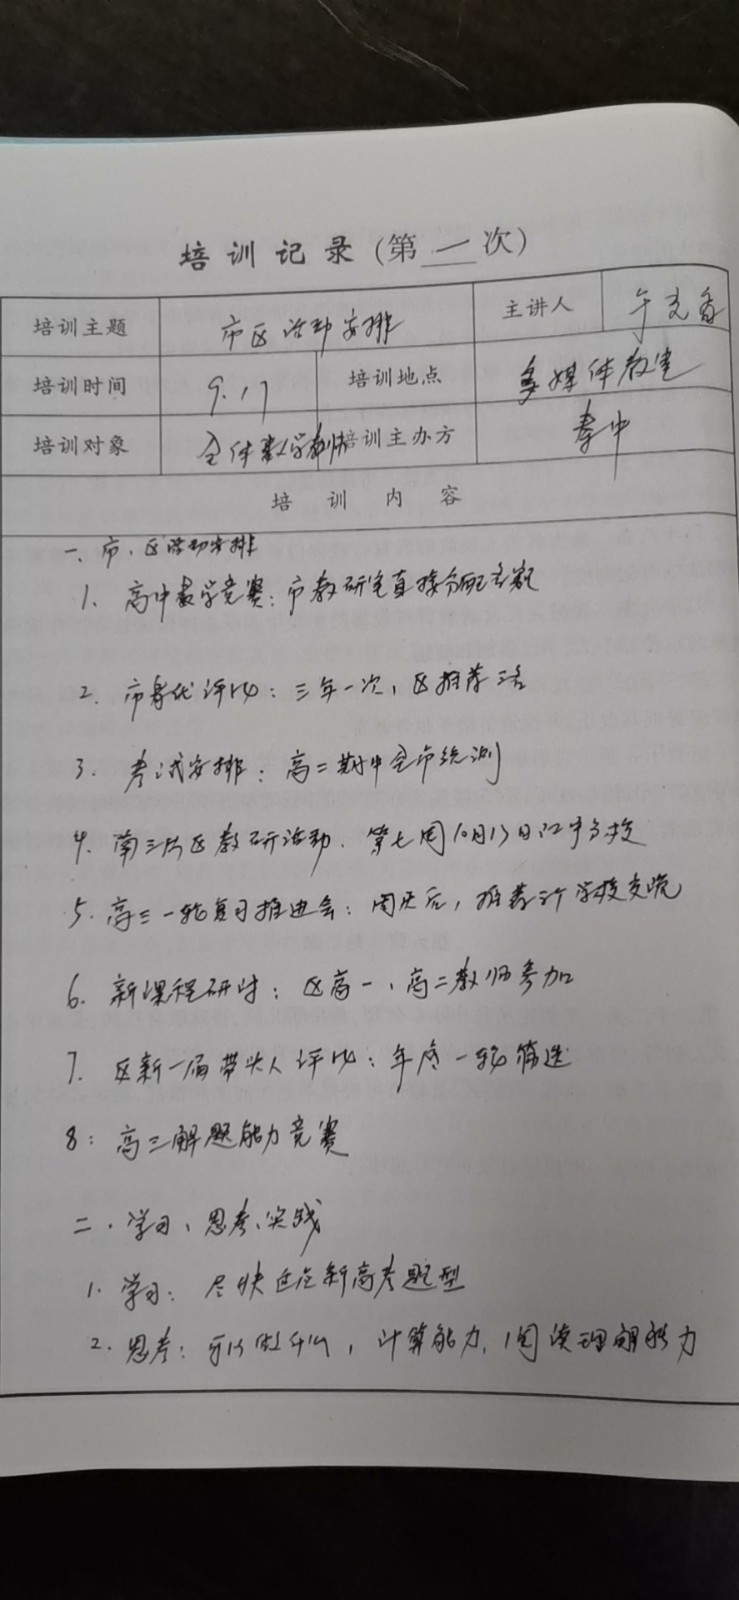 培训记录(第一次)
培训主题 市区活动安排 主讲人
培训时间 9.17 培训地点 多媒体教室
培训对象 全体数学教师 培训主办方
培训内容
一、市、区活动安排
1. 高中数学竞赛：市教研室直接分配名额
2. 市 评比：三年一次，区推荐
3. 考试安排：高二期中全市统测
4. 南三片区教研活动. 第七周10月13日江宁
5. 高三一轮复习推进会：国庆后，推荐 学校交流
6. 新课程研讨：区高一、高二教师参加
7. 区新一届带头人评比：年底一轮筛选
8：高三解题能力竞赛
二. 学习、思考、实践
1. 学习：尽快适应新高考题型
2. 思考：可以做什么，计算能力，阅读理解能力